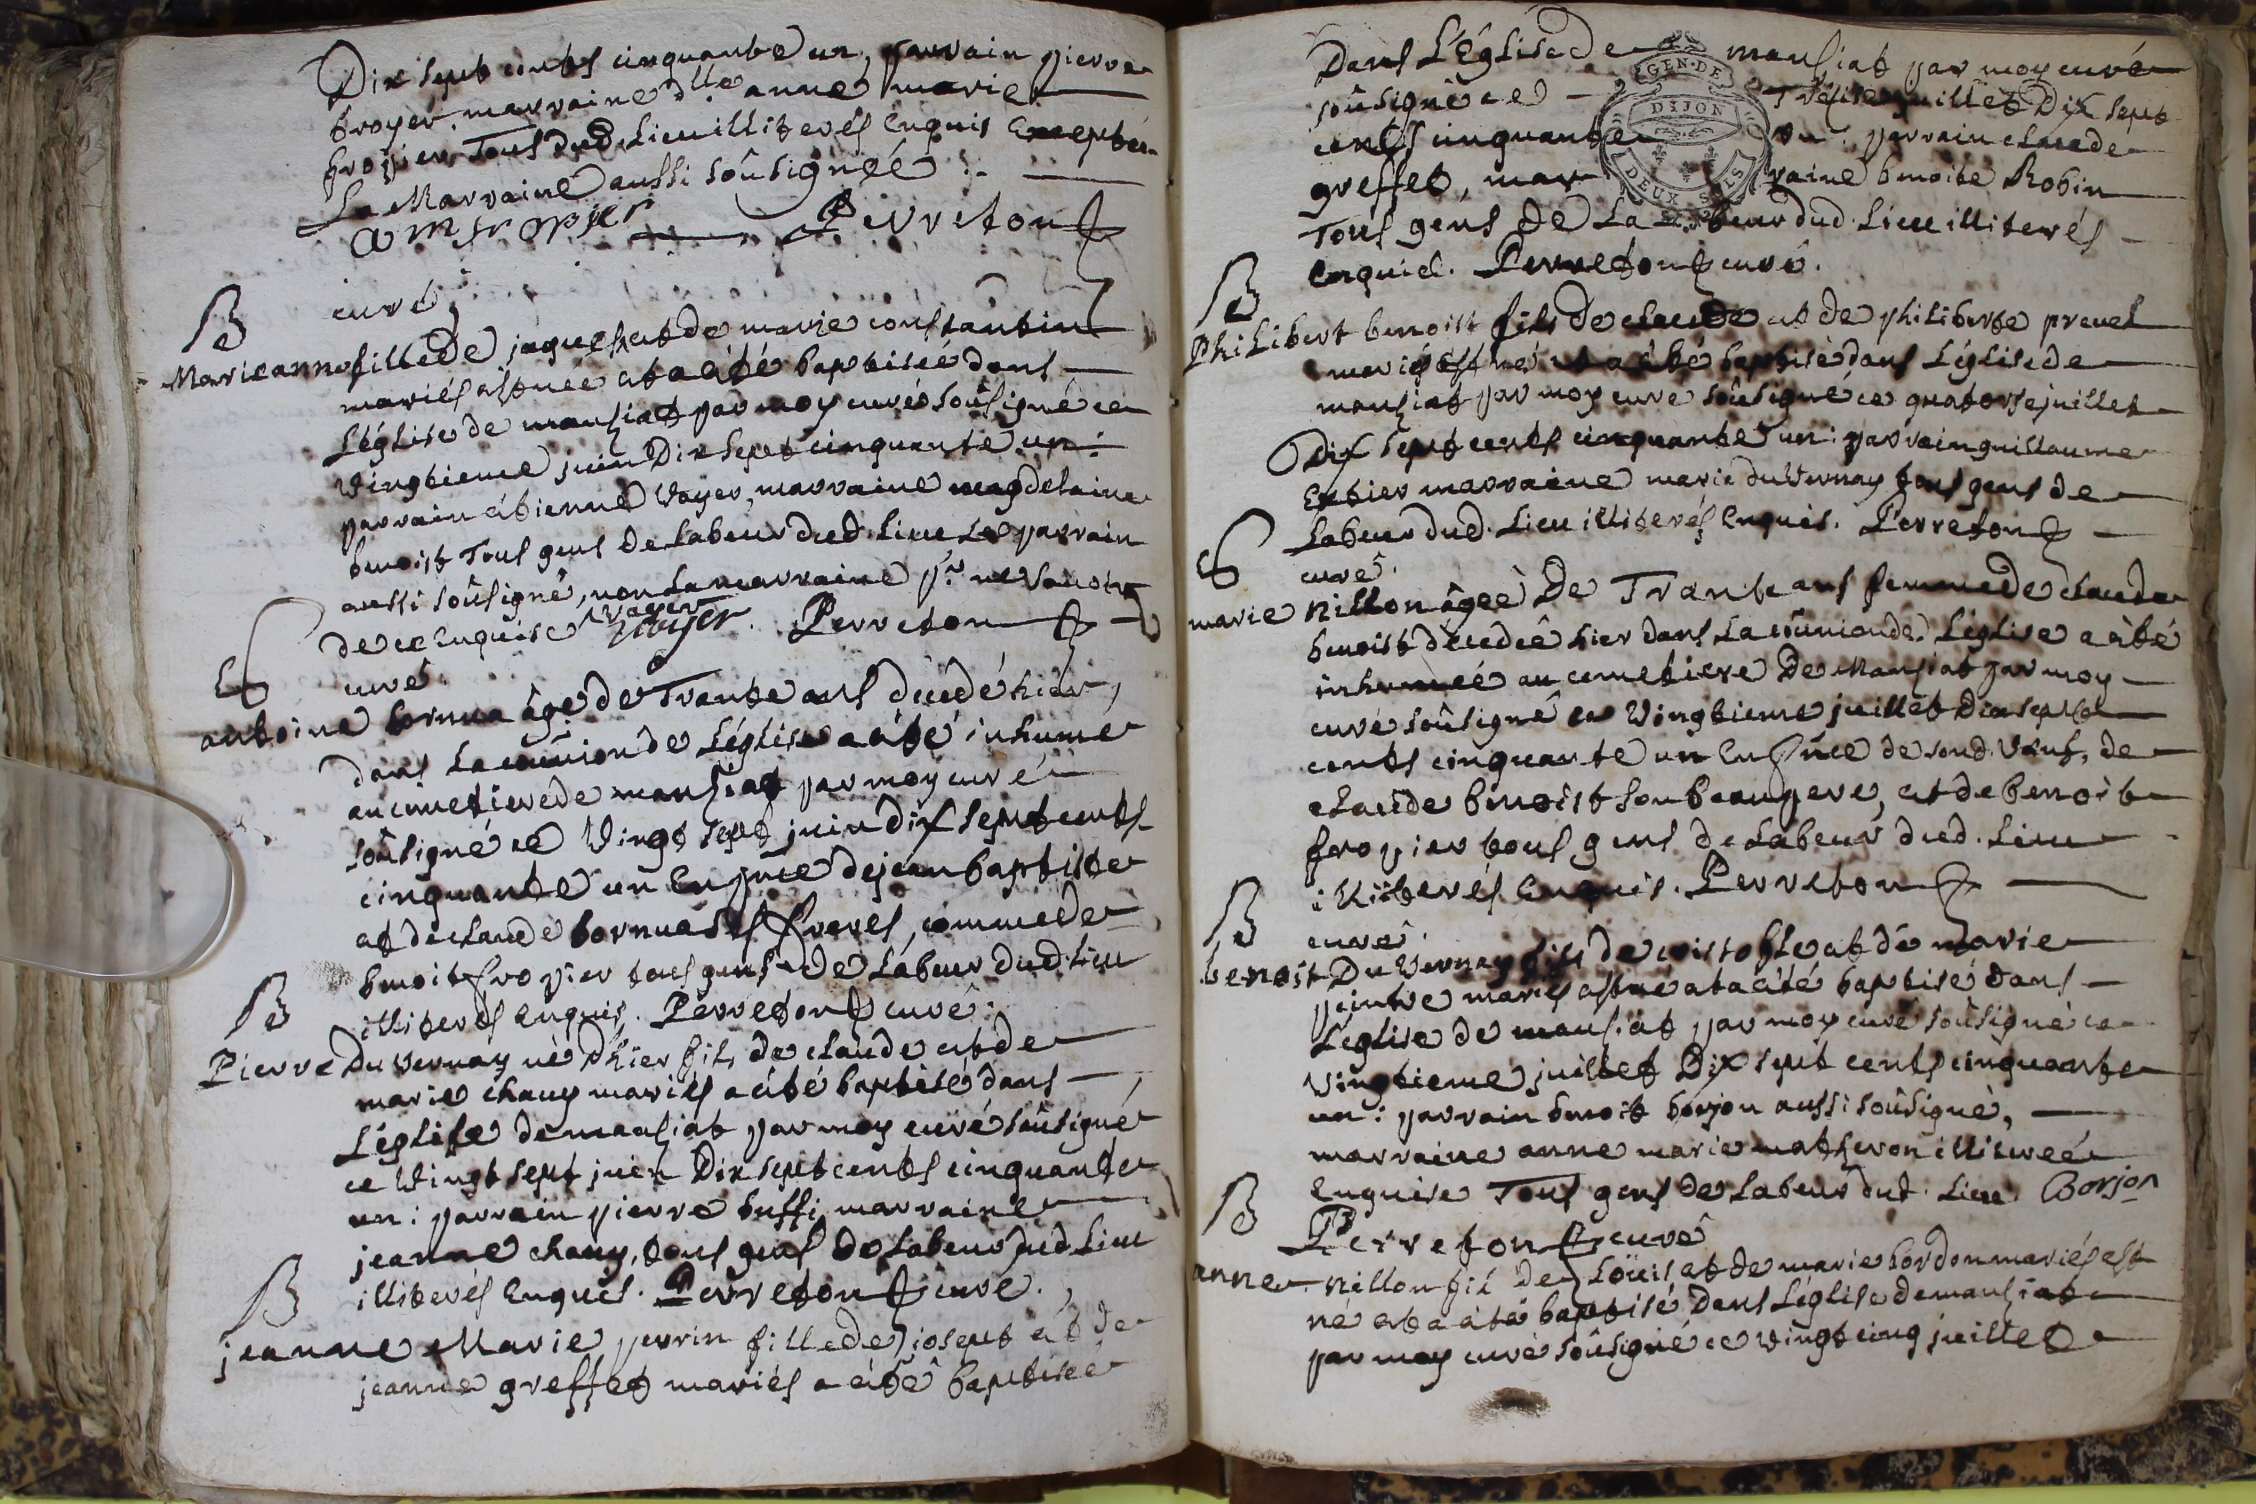 Dix sept cents cinquante un, parrain pierre
broyer, marraine dlle anne marie
fropier Tous dud. Lieu illiterés Enquis Excepté
La Marraine aussi soûsignéé :-
a m fropier Perreton
curé
B
Marie anne fille de jaques et de marie constantin
mariés est née et a été baptisée dans
L'église de mansiat par moy curé soûsigné ce
vingtieme juin Dix sept cinquante un :
parrain étienne Voyer, marraine magdelaine
benoist Tous gens de Labeur dud. Lieu Le parrain
aussi soûsigné, non La marraine pr ne savoir
de ce Enquise Voyer. Perreton
curé
S
antoine bornua âgé de Trante ans decedé hier,
dans La coûnion de L'église a été inhumé
au cimetiere de mansiat par moy curé
soûsigné ce Vingt sept juin dix sept cents
cinquante un En pnce de jean baptiste
et de claude bornua ses freres, comme de
benoit fropier tous gens de Labeur dud. Lieu
illiterés Enquis. Perreton curé :
B
Pierre Du Vernay né d'hier fils de claude et de
marie chany mariés a été baptisé dans
L'église de mansiat par moy curé soûsigné
ce Vingt sept juin Dix sept cents cinquante
un : parrain pierre buffi, marraine
jeanne chany, tous gens de Labeur dud. Lieu
illiterés Enquis. Perreton curé.
B
jeanne Marie perrin fille de josept et de
jeanne greffet mariés a été baptisée
Dans L'église de mansiat par moy curé
soûsigné ce Treise juillet Dix sept
GEN. DE
DIJON
DEUX SOLS
cents cinquante un : parrain claude
greffet, marraine benoite Robin
Tous gens de La beur dud. Lieu illiterés
Enquis. Perreton curé.
B
Philibert benoist fils de claude et de philiberte prevel
mariés est né et a été baptisé dans L'église de
mansiat par moy curé soûsigné ce quatorse juillet
Dix sept cents cinquante un : parrain guillaume
marraine marie du Vernay tous gens de
Labeur dud. Lieu illiterés Enquis. Perreton
curé.
S
marie Nillon âgée De Trante ans femme de claude
benoist décedéé hier dans La coûnion de L'église a été
inhuméé au cemetiere De Mansiat par moy
curé soûsigné ce Vingtieme juillet dix sept
cents cinquante un En pnce de soud. Veuf, de
claude benoist son beaupere, et de benoit
fropier tous gens de Labeur dud. Lieu
illiterés Enquis. Perreton
curé
B
benoist Du Vernay fils de cristofle et de marie
peintre mariés est né et a été baptisé dans
L'eglise de mansiat par moy curé soûsigné ce
Vingtieme juillet Dix sept cents cinquante
un : parrain benoit borjon aussi soûsigné,
marraine anne marie matheron illiteréé
Enquise Tous gens de Labeur dud. Lieu. Borjon
Perreton curé
B
anne Nillon fil de Loüis et de marie bordon mariés est
né et a été baptisé Dans L'église de mansiat
par moy curé soûsigné ce vingt cinq juillet